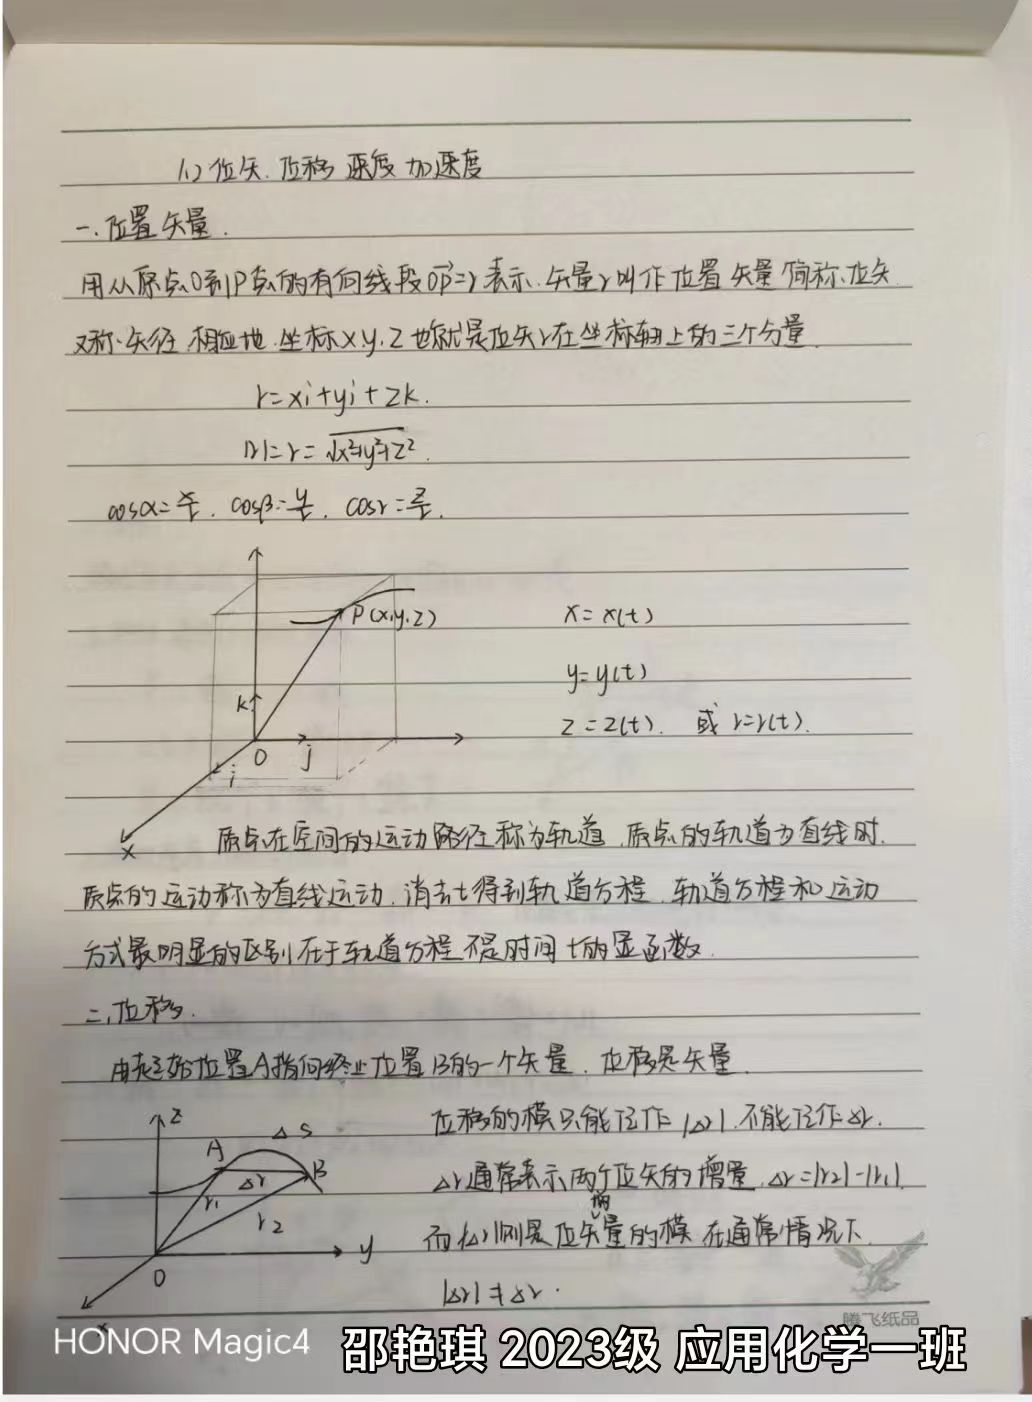 (1) 位矢. 位移 速度 加速度
一. 位置矢量.
用从原点O到P点的有向线段OP=r表示. 矢量r叫作位置矢量 简称.位矢
又称.矢径 相应地.坐标x y.z 也就是位矢r在坐标轴上的三个分量.
r=xi+yi+zk.
|r|=r=√x²+y²+z².
cosα=x/r. cosβ=y/r. cosr=z/r.
P(x,y,z) x=x(t)
k y=y(t)
z=z(t). 或 r=r(t).
O j
i
x 质点在空间的运动路径称为轨道.质点的轨道为直线时.
质点的运动称为直线运动.消去t得到轨道方程.轨道方程和运动
方式最明显的区别在于轨道方程不是时间t的显函数.
二.位移.
由起始位置A指向终止位置B的一个矢量. 位移是矢量.
z 位移的模只能记作|Δr|.不能记作Δr.
A Δs B
Δr Δr通常表示两个位矢的增量.Δr=|r2|-|r1|.
r1 r2 而|Δr|则是位矢增量的模 在通常情况下.
O y
|Δr|≠Δr.
x
腾飞纸品
HONOR Magic4 邵艳琪 2023级 应用化学一班